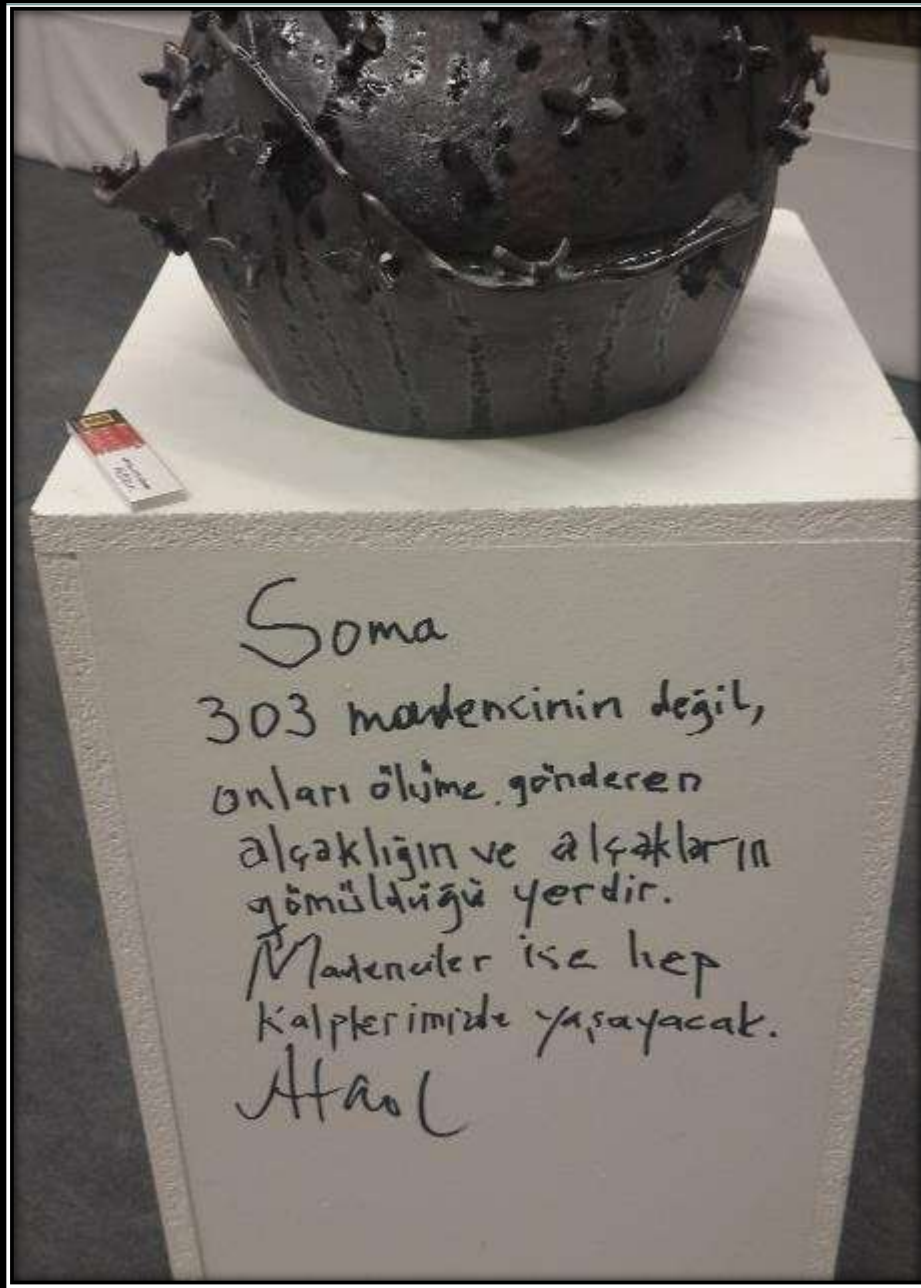 Soma
303 madencinin değil,
onları ölüme gönderen
alçaklığın ve alçakların
gömüldüğü yerdir.
Madenciler ise hep
kalplerimizde yaşayacak.
Ataol